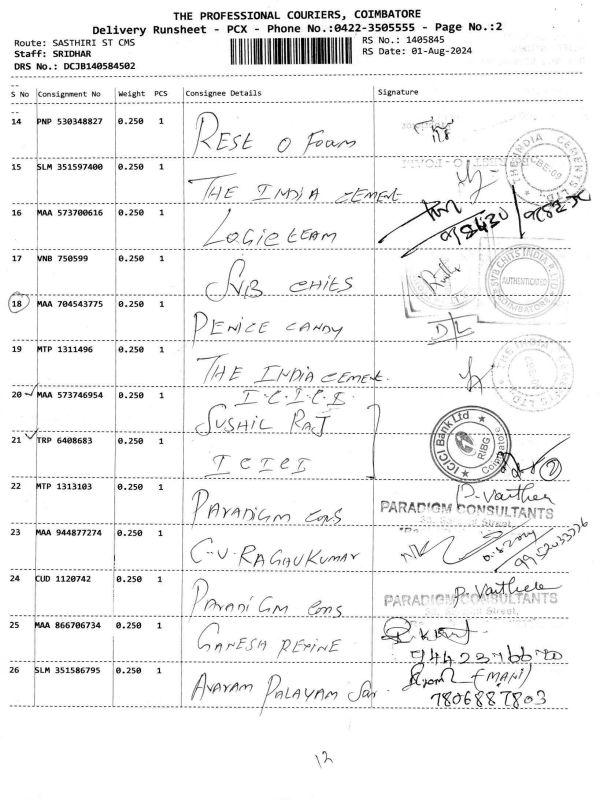 THE PROFESSIONAL COURIERS, COIMBATORE
Delivery Runsheet - PCX - Phone No.:0422-3505555 - Page No.:2
Route: SASTHIRI ST CMS
RS No.: 1405845
Staff: SRIDHAR
RS Date: 01-Aug-2024
DRS No.: DCJB140584502
S No Consignment No Weight PCS Consignee Details Signature
14 PNP 530348827 0.250 1 REST O FOAM
15 SLM 351597400 0.250 1 THE INDIA CEMENT
THE INDIA CEMENTS LTD. CBE-09
16 MAA 573700616 0.250 1 LOGIC TEAM
17 VNB 750599 0.250 1 SVB CHITS
SVB CHITS INDIA AUTHENTICATED COIMBATORE
18 MAA 704543775 0.250 1 PENICE CANDY D/L
19 MTP 1311496 0.250 1 THE INDIA CEMENT.
20 MAA 573746954 0.250 1 I.C.I.C.I
SUSHIL RAJ
ICICI Bank Ltd RIBG Coimbatore
21 TRP 6408683 0.250 1 ICICI 2
22 MTP 1313103 0.250 1 PARADIGM CONS
PARADIGM CONSULTANTS
23 MAA 944877274 0.250 1 C.V. RAGHU KUMAR
24 CUD 1120742 0.250 1 PARADIGM CONS
PARADIGM CONSULTANTS
25 MAA 866706734 0.250 1 GANESH REPINE
26 SLM 351586795 0.250 1 AVARAM PALAYAM (MANI)
7806887803
12